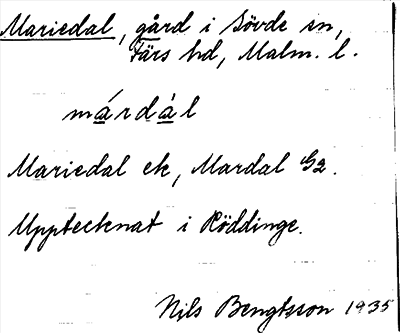 Mariedal, gård i Sövde sn,
Färs hd, Malm. l.
márdàl
Mariedal ek, Mardal G2.
Upptecknat i Röddinge.
Nils Bengtsson 1935